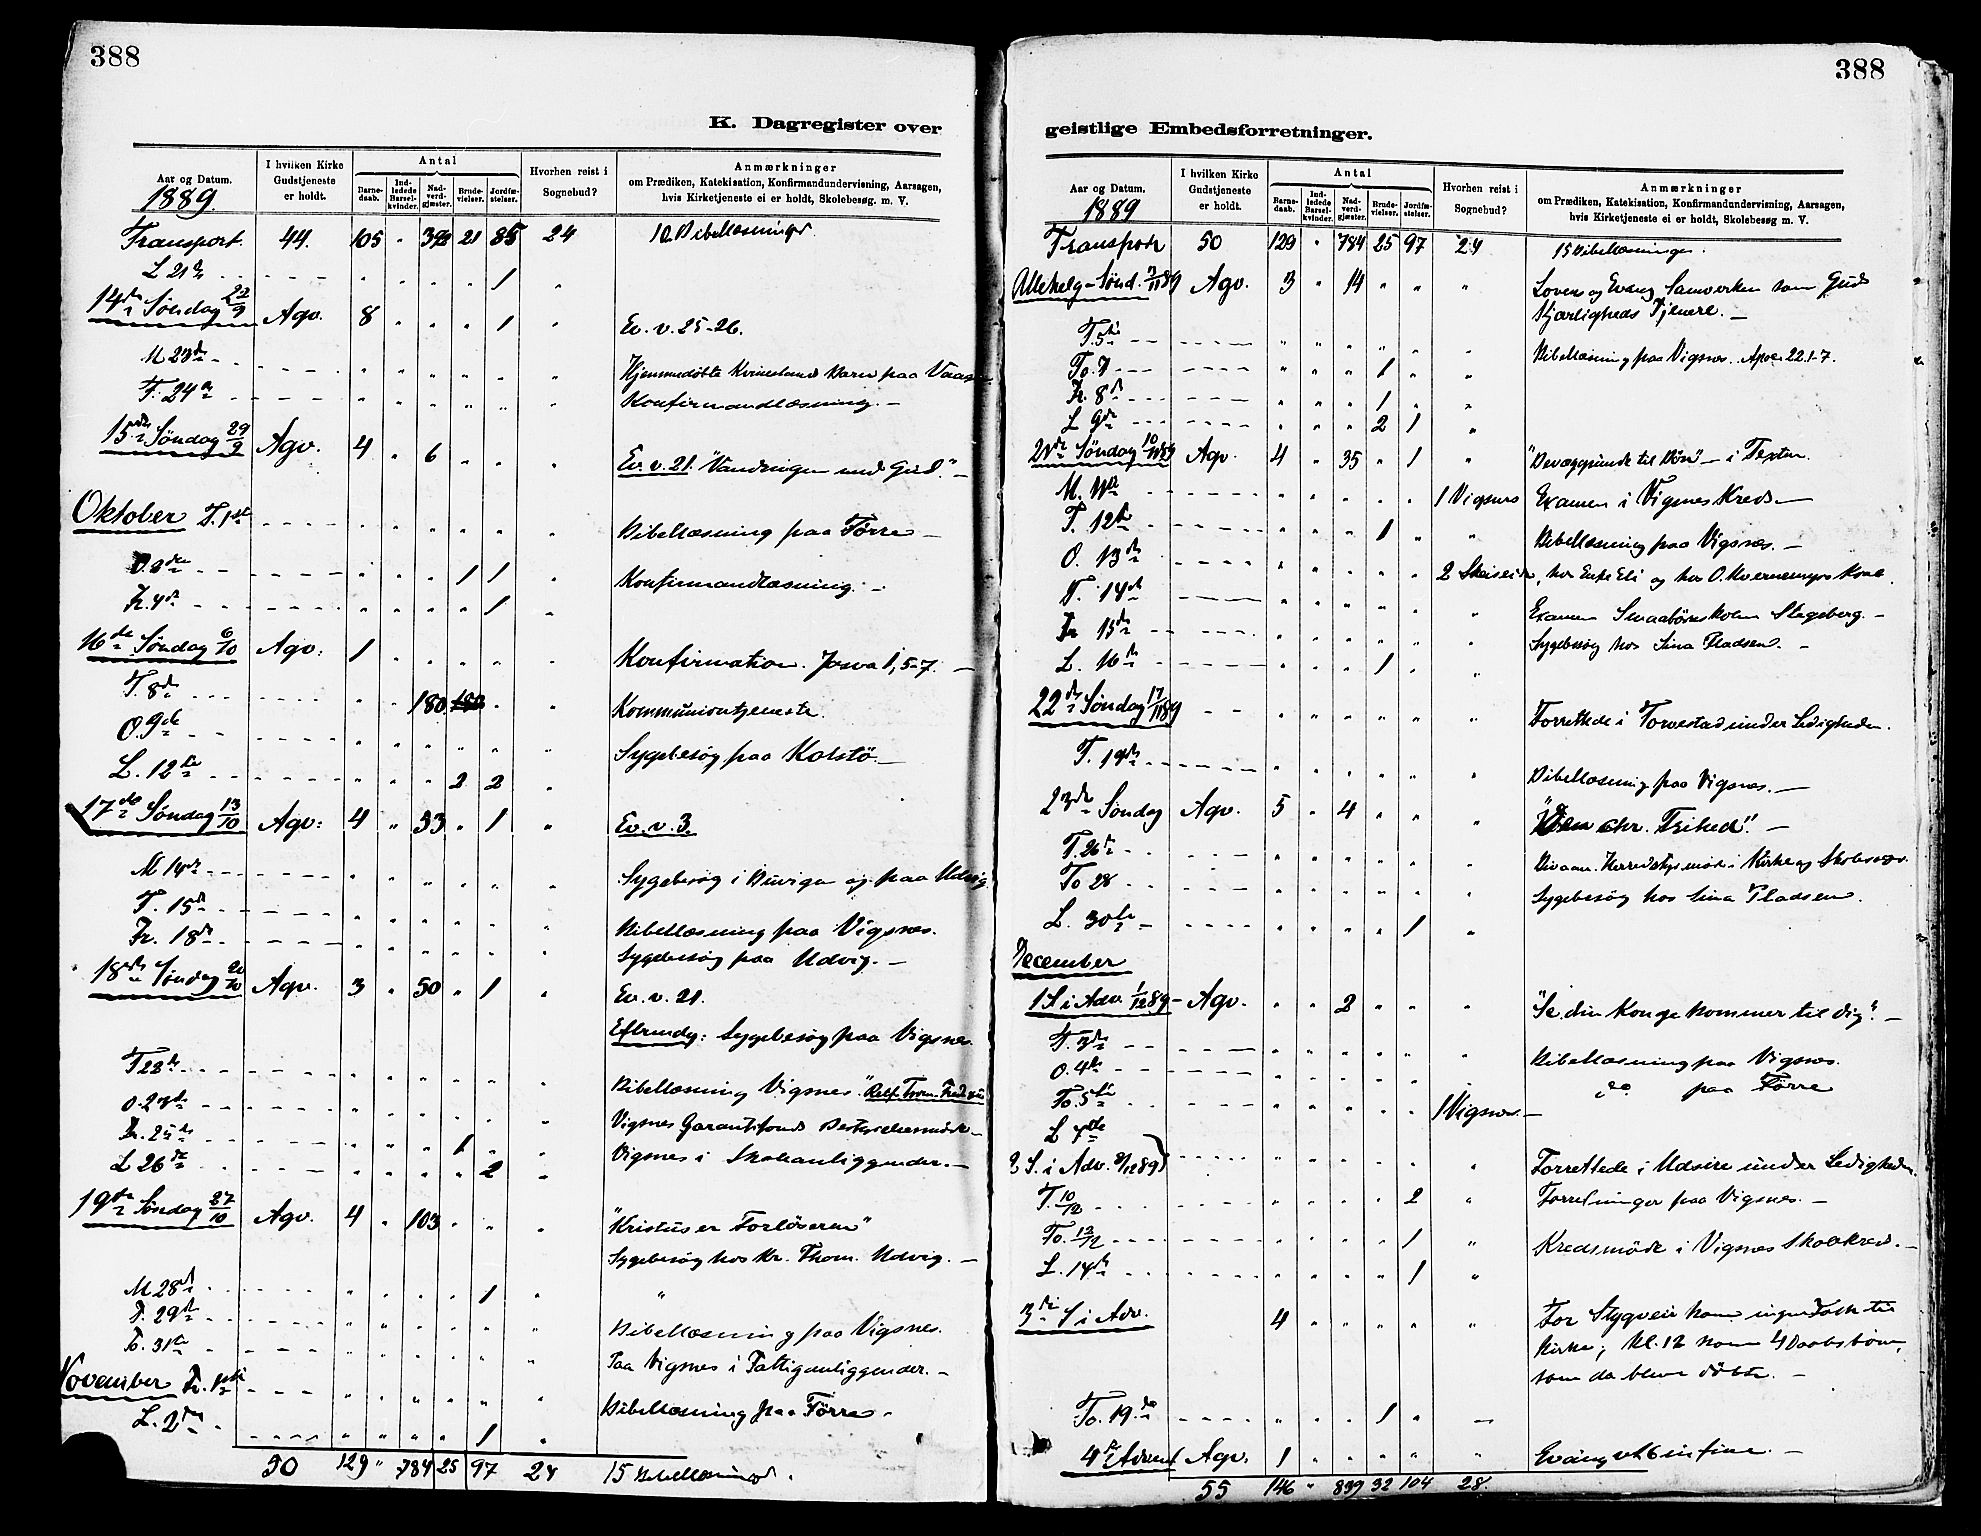 388
K. Dagregister over
Aar og Datum.
1889.
I hvilken Kirke Gudstjeneste er holdt.
Antal
Barne-daab.
Ind-ledede Barsel-kvinder.
Nad-verd-gjæster.
Brude-vielser.
Jordfæ-stelser.
Hvorhen reist i Sognebud?
Anmærkninger
om Prædiken, Katekisation, Konfirmandundervisning, Aarsagen,
hvis Kirketjeneste ei er holdt, Skolebesøg. m. V.
Transport. 44. 105 " 392 21 85 24 10 Bibellæsninger
L 21de " " " " 1 "
14de Søndag 22/9 Agv. 8 " " " 1 " Ev. v. 25-26.
M 23de " " " " " " Hjemmedøbte Barn paa
T. 24de " " " " " " Konfirmandlæsning. —
15de Søndag 29/9 Agv. 4 " 6 " " " Ev. v. 21. "Vandringen med Gud." —
Oktober T. 1ste " " " " " " Bibellæsning paa Førre —
O. 2den " " " 1 1 " Konfirmandlæsning. —
Fr. 4de " " " " 1 "
16de Søndag 6/10 Agv. 1 " " " " " Konfirmation. Josva 1, 5-7. —
T. 8de " " 180 " " " Kommuniontjeneste.
O. 9de " " " " " " Sygebesøg paa Kolstø —
L. 12te " " " 2 2 "
17de Søndag 13/10 Agv. 4 " 33 " 1 " Ev. v. 3.
M 14de " " " " " " Sygebesøg i og paa Udvig
T. 15de " " " " " " Bibellæsning paa Vigsnes.
Fr. 18de " " " " " " Sygebesøg paa Udvig. —
18de Søndag 20/10 Agv. 3 " 50 " 1 " Ev. v. 21.
Eftrmdg: Sygebesøg paa Vigsnes.
T 22de " " " " " " Bibellæsning Vigsnes.
O. 23de " " " " " " Vigsnes Garantifonds Bestyrelsesmøde —
Fr. 25de " " " 1 " " Vigsnes i Skoleanliggender. —
L 26de " " " " 2 "
19de Søndag 27/10 Agv. 4 " 103 " " " "Kristus er Forløseren"
Sygebesøg hos Kr. Thom. Udvig. —
M 28de " " " " 1 " "
T. 29de " " " " " " Bibellæsning paa Vigsnes.
To. 31te " " " " " " Paa Vigsnes i Fattiganliggender. —
November Fr. 1ste " " " " " " Bibellæsning paa Førre —
L. 2den " " " " 1 "
50 129 " 784 25 97 24 15 Bibellæsninger.
388
geistlige Embedsforretninger.
Aar og Datum.
1889
I hvilken Kirke Gudstjeneste er holdt.
Antal
Barne-daab.
Ind-ledede Barsel-kvinder.
Nad-verd-gjæster.
Brude-vielser.
Jordfæ-stelser.
Hvorhen reist i Sognebud?
Anmærkninger
om Prædiken, Katekisation, Konfirmandundervisning, Aarsagen,
hvis Kirketjeneste ei er holdt, Skolebesøg m. V.
Transport 50 129 " 784 25 97 24 15 Bibellæsninger.
Allehelg-Sønd. 3/11 89 Agv. 3 " 14 " " " Loven og Evang Samvirken som Guds
Kjærligheds Tjenere. —
T. 5te " " " " " " Bibellæsning paa Vigsnes. Apoc. 22.1-7.
To. 7 " " " 1 " "
Fr. 8de " " " 1 " "
L 9de " " " 2 1 "
21de Søndag 10/11 89 Agv. 4 " 35 " 1 " "Bevæggrunde til Bøn" — i Texten.
M. 11te " " " " " 1 Vigsnes Examen i Vigsnes Kreds. —
T. 12te " " " 1 " " Bibellæsning paa Vigsnes. —
O. 13de " " " " " 2 , hos Enke Eli og hos O. Kvernemyrs Kone.
T. 14de " " " " " " Examen Smaabørnskolen Stageberg. —
Fr 15de " " " " " " Sygebesøg hos Sina Pladsen. —
L. 16de " " " 1 " "
22de Søndag 17/11 89 " " " " " " Forrettede i Torvestad under Ledigheden.
T. 19de " " " " " " Bibellæsning paa Vigsnes. —
23de Søndag Agv. 5 " 4 " " " "Den chr. Frihed". —
T. 26de " " " " " " Herredstyrsmøde i Kirke og Skolesager.
To 28 " " " " " " Sygebesøg hos Sina Pladsen.
L. 30te — " " " " 1 "
December
1 S i Adv. 1/12 89 — Agv. " " 2 " " " "Se din Konge kommer til dig". —
T. 3de " " " " " " Bibellæsning paa Vigsnes.
O. 4de " " " " " " do paa Førre
To. 5te " " " " " 1 Vigsnes. —
L 7de
2 S. i Adv. 8/12 89 " " " " " " Forrettede i Udsire under Ledigheden.
T. 10/12 " " " " 2 " Forretninger paa Vigsnes. —
To. 12/12 " " " " 1 " Kredsmøde i Vigsnes Skolekreds. —
L. 14de " " " " 1 "
3die S i Adv. 4 " " " " " For Stygveir kom ingen Folk til
Kirke; Kl. 12 kom 4 Daabsbørn,
som da bleve døbte. —
To. 19de " " " 1 " —
4de i Advent Agv. 1 " " " " "
55 146 " 839 32 104 28.